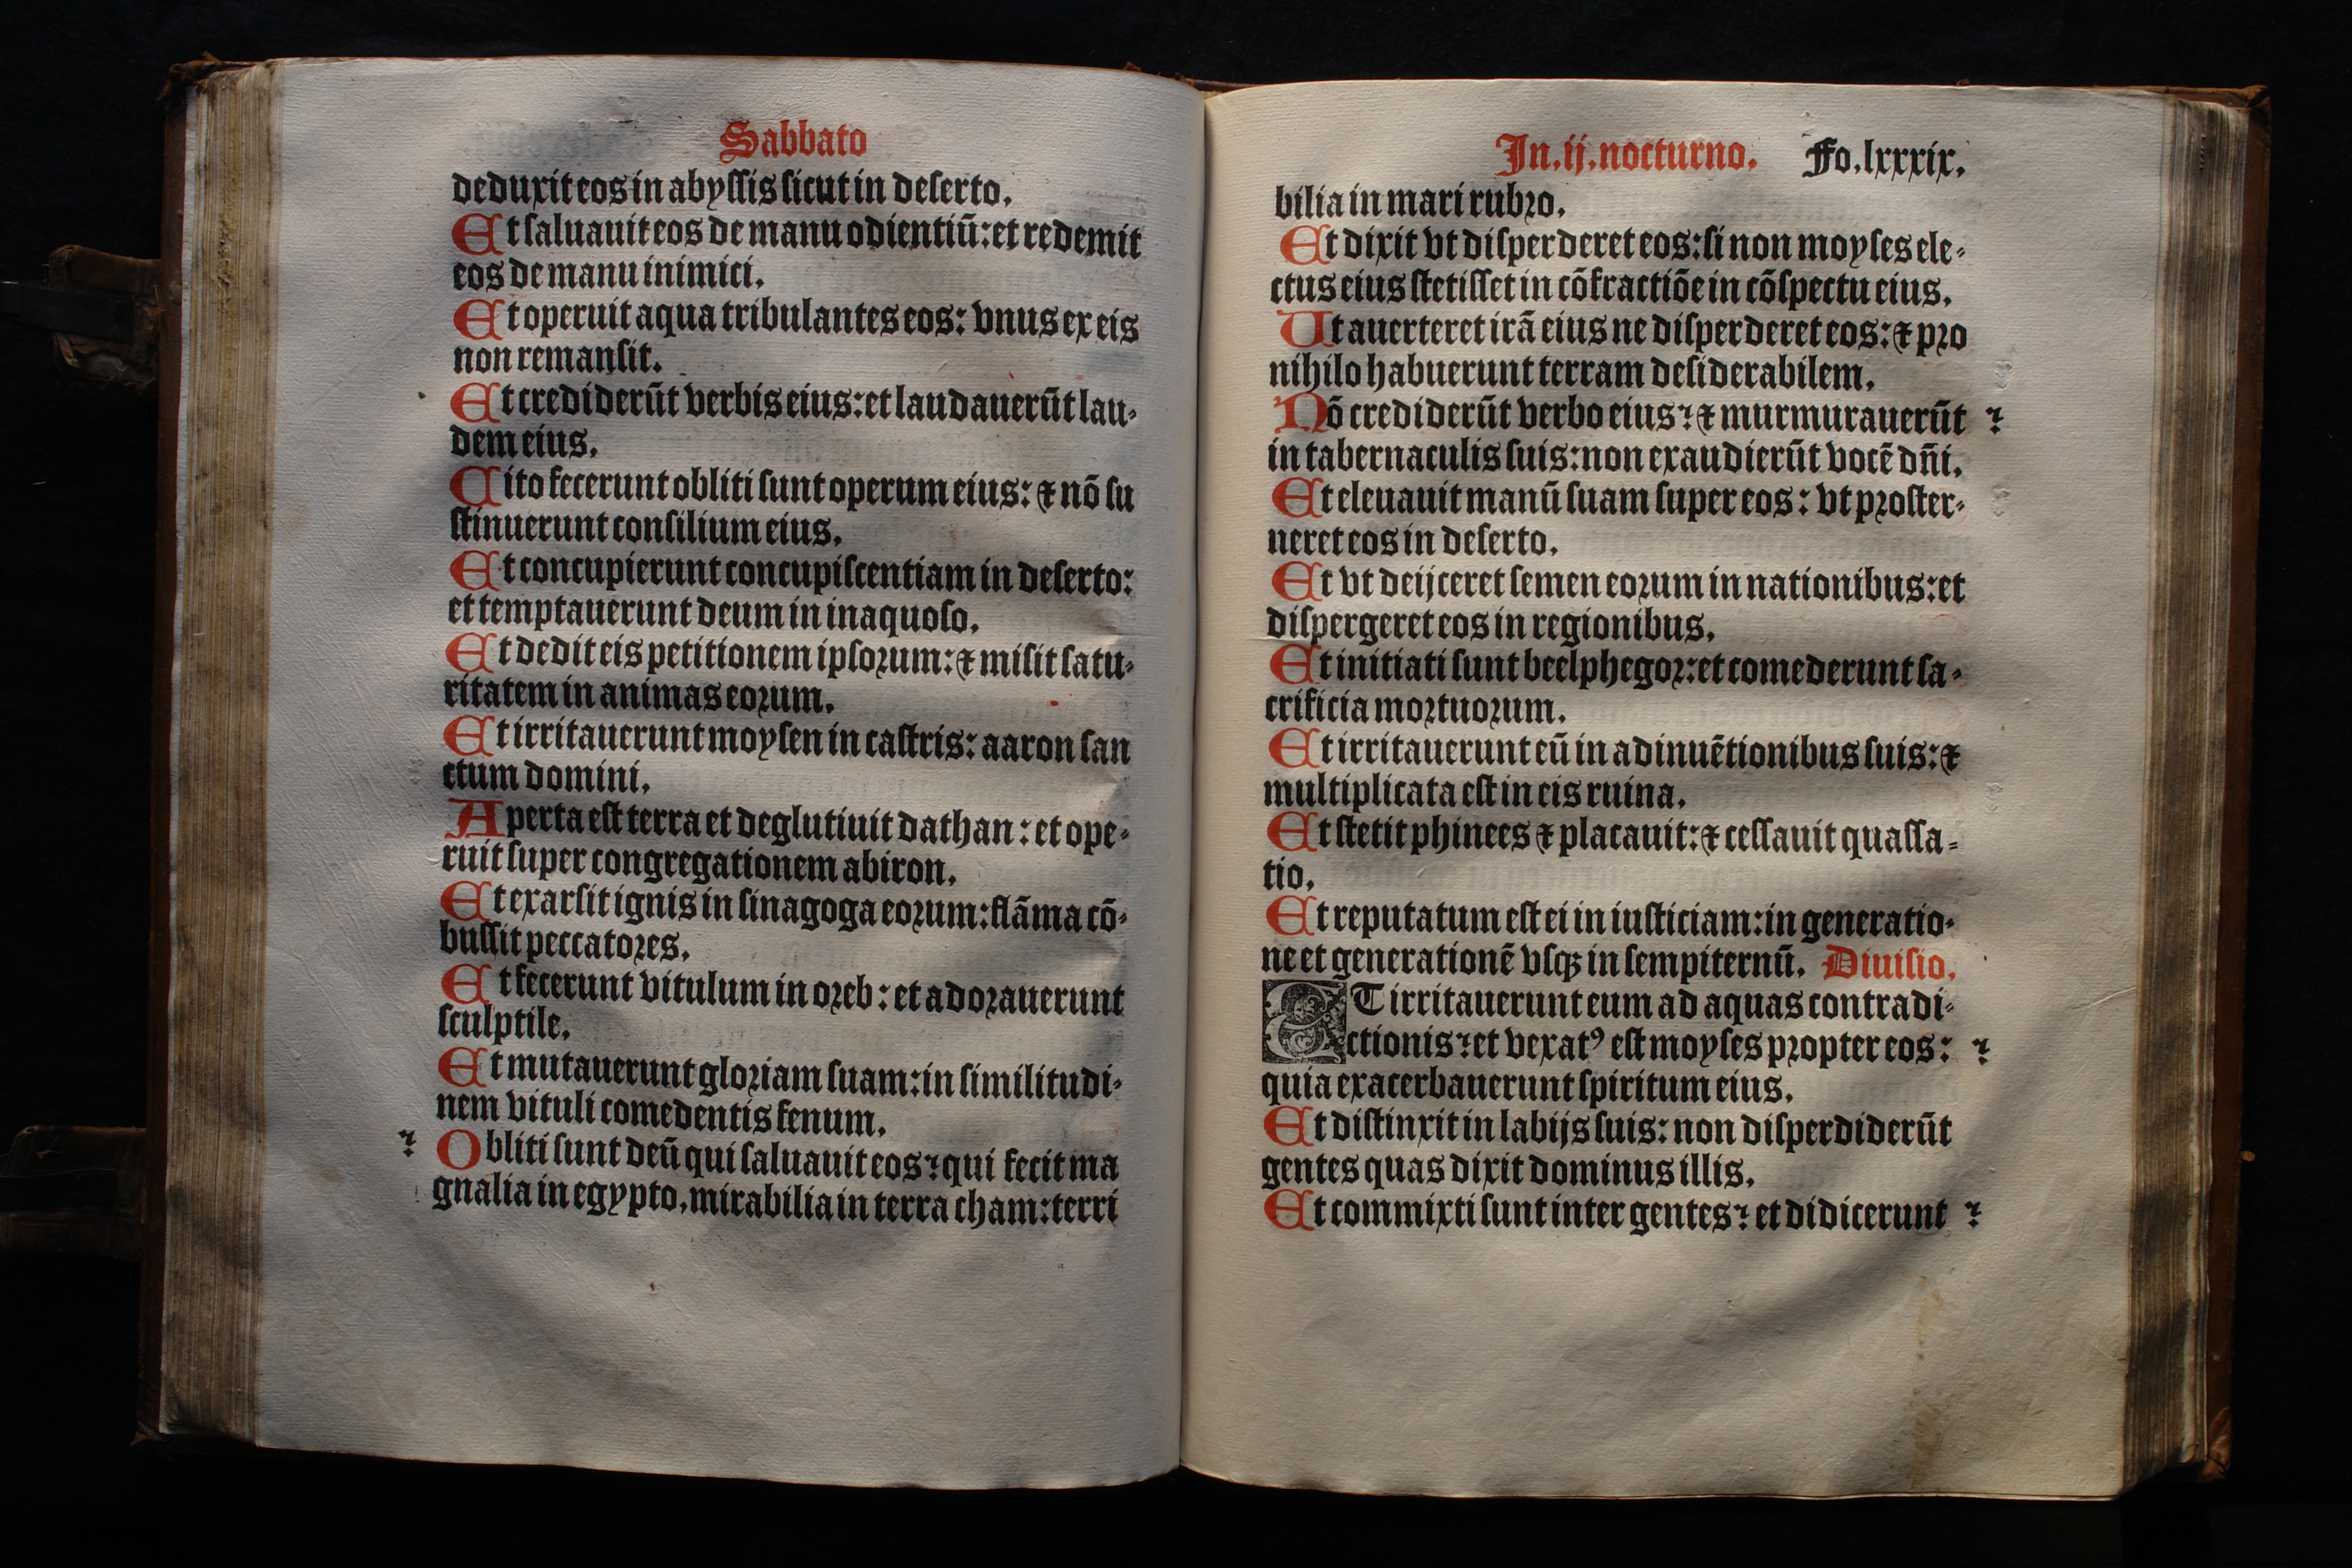 Sabbato
deduxit eos in abyſſis ſicut in deſerto.
Et ſaluauit eos de manu odientiū: et redemit
eos de manu inimici.
Et operuit aqua tribulantes eos: vnus ex eis
non remanſit.
Et crediderūt verbis eius: et laudauerūt lau-
dem eius.
Cito fecerunt obliti ſunt operum eius: ⁊ nō ſu
ſtinuerunt conſilium eius.
Et concupierunt concupiſcentiam in deſerto:
et temptauerunt deum in inaquoſo.
Et dedit eis petitionem ipſoꝛum: ⁊ miſit ſatu-
ritatem in animas eoꝛum.
Et irritauerunt moyſen in caſtris: aaron ſan
ctum domini.
Aperta eſt terra et deglutiuit dathan: et ope-
ruit ſuper congregationem abiron.
Et exarſit ignis in ſinagoga eoꝛum: flāma cō-
buſſit peccatoꝛes.
Et fecerunt vitulum in oꝛeb: et adoꝛauerunt
ſculptile.
Et mutauerunt gloꝛiam ſuam: in ſimilitudi-
nem vituli comedentis fenum.
Obliti ſunt deū qui ſaluauit eos: qui fecit ma
gnalia in egypto, mirabilia in terra cham: terri
In .ij. nocturno. Fo. lxxxix.
bilia in mari rubꝛo.
Et dixit vt diſperderet eos: ſi non moyſes ele-
ctus eius ſtetiſſet in cōfractiōe in cōſpectu eius.
Ut auerteret irā eius ne diſperderet eos: ⁊ pꝛo
nihilo habuerunt terram deſiderabilem.
Nō crediderūt verbo eius: ⁊ murmurauerūt
in tabernaculis ſuis: non exaudierūt vocē dn̄i.
Et eleuauit manū ſuam ſuper eos: vt pꝛoſter-
neret eos in deſerto.
Et vt deijceret ſemen eoꝛum in nationibus: et
diſpergeret eos in regionibus.
Et initiati ſunt beelphegoꝛ: et comederunt ſa-
crificia moꝛtuoꝛum.
Et irritauerunt eū in adinuētionibus ſuis: ⁊
multiplicata eſt in eis ruina.
Et ſtetit phinees ⁊ placauit: ⁊ ceſſauit quaſſa-
tio.
Et reputatum eſt ei in iuſticiam: in generatio-
ne et generationē vſqꝫ in ſempiternū. Diuiſio.
ET irritauerunt eum ad aquas contradi-
ctionis: et vexatꝰ eſt moyſes pꝛopter eos:
quia exacerbauerunt ſpiritum eius.
Et diſtinxit in labijs ſuis: non diſperdiderūt
gentes quas dixit dominus illis.
Et commixti ſunt inter gentes: et didicerunt